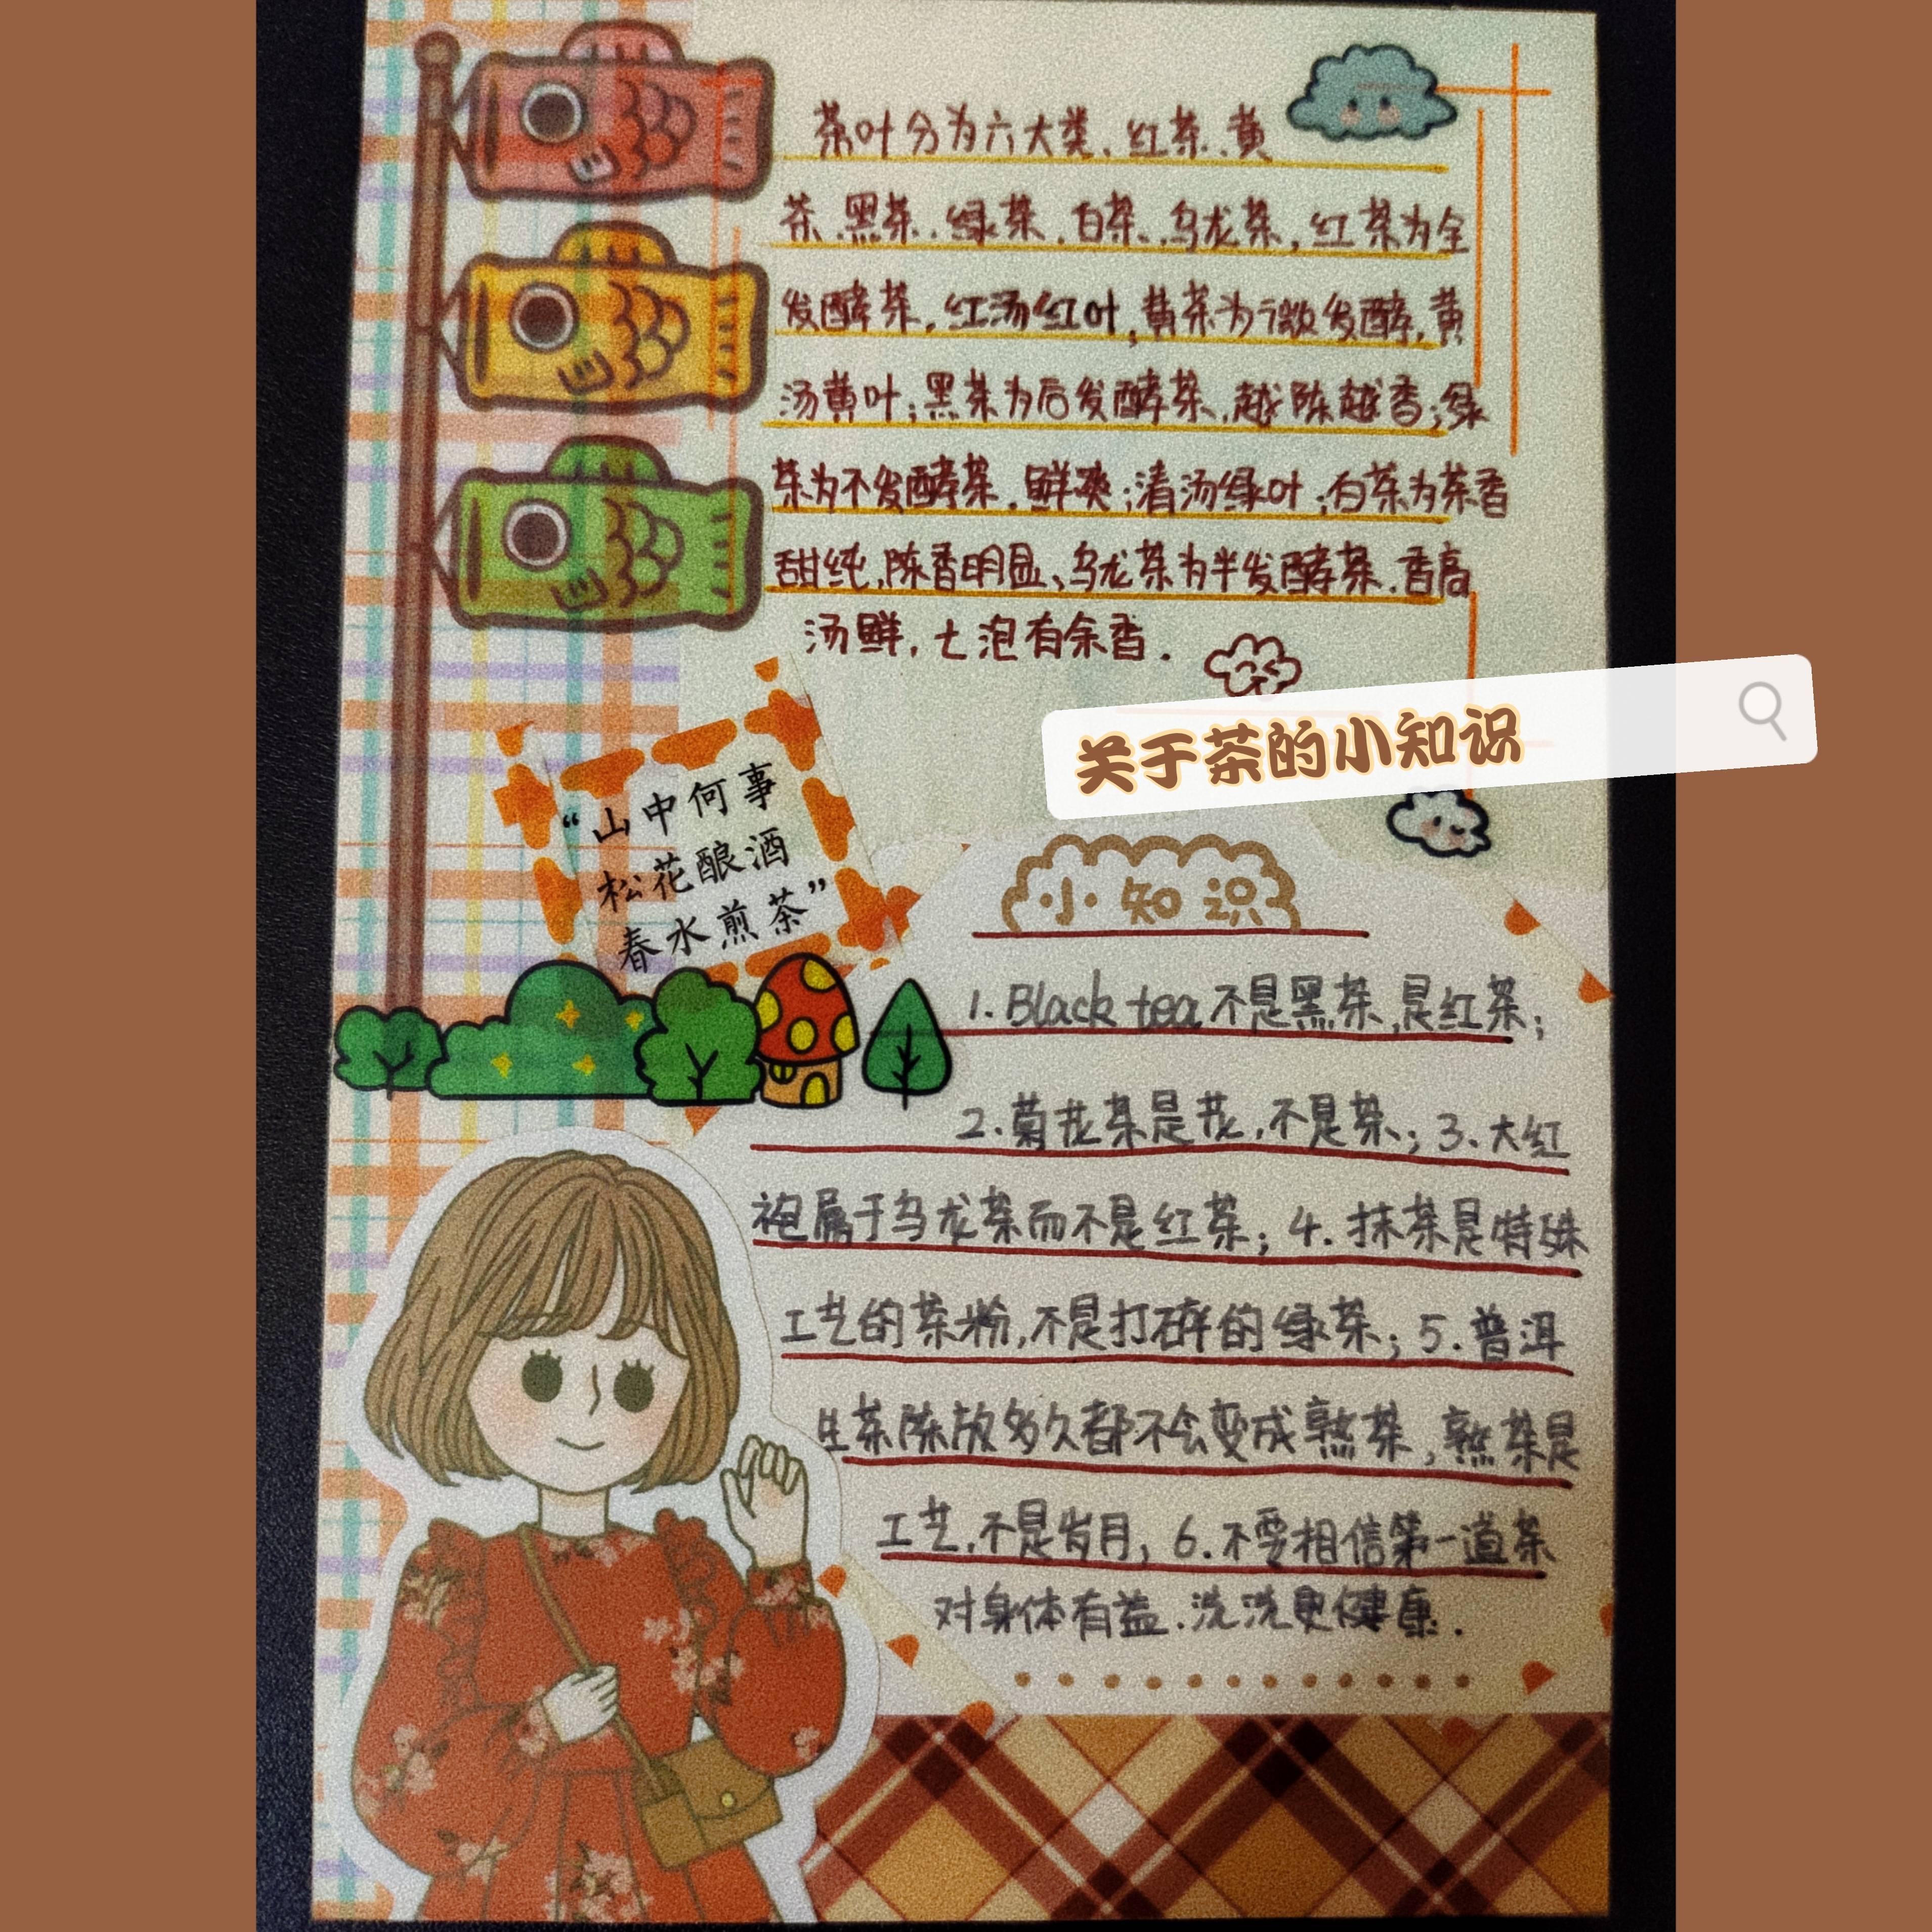 茶叶分为六大类.红茶.黄
茶.黑茶.绿茶.白茶.乌龙茶,红茶为全
发酵茶,红汤红叶,黄茶为微发酵,黄
汤黄叶;黑茶为后发酵茶,越陈越香;绿
茶为不发酵茶.鲜爽;清汤绿叶;白茶为茶香
甜纯,陈香明显、乌龙茶为半发酵茶.香高
汤鲜,七泡有余香.
关于茶的小知识
“山中何事
松花酿酒
春水煎茶”
小知识
1.Black tea不是黑茶,是红茶;
2.菊花茶是花,不是茶;3.大红
袍属于乌龙茶而不是红茶;4.抹茶是特殊
工艺的茶粉,不是打碎的绿茶;5.普洱
生茶陈放多久都不会变成熟茶,熟茶是
工艺,不是岁月,6.不要相信第一道茶
对身体有益.洗洗更健康.